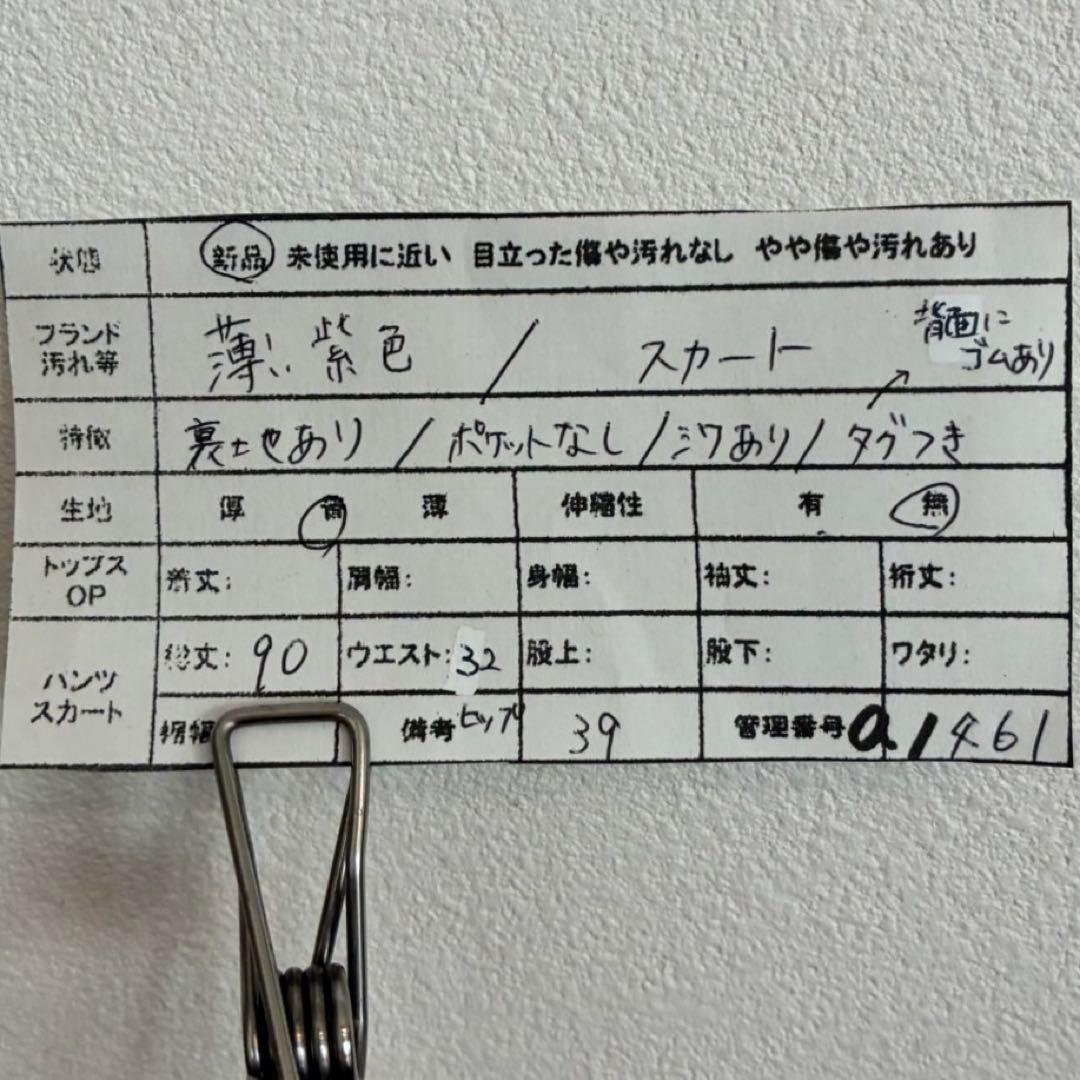 状態 新品 未使用に近い 目立った傷や汚れなし やや傷や汚れあり
ブランド
汚れ等
薄い紫色 / スカート
背面に
ゴムあり
特徴 裏地あり/ポケットなし/シワあり/タグつき
生地 厚 普 薄 伸縮性 有 無
トップス
OP
着丈: 肩幅: 身幅: 袖丈: 裄丈:
パンツ
スカート
総丈: 90 ウエスト: 32 股上: 股下: ワタリ:
裾幅 備考 ヒップ 39 管理番号 a1461